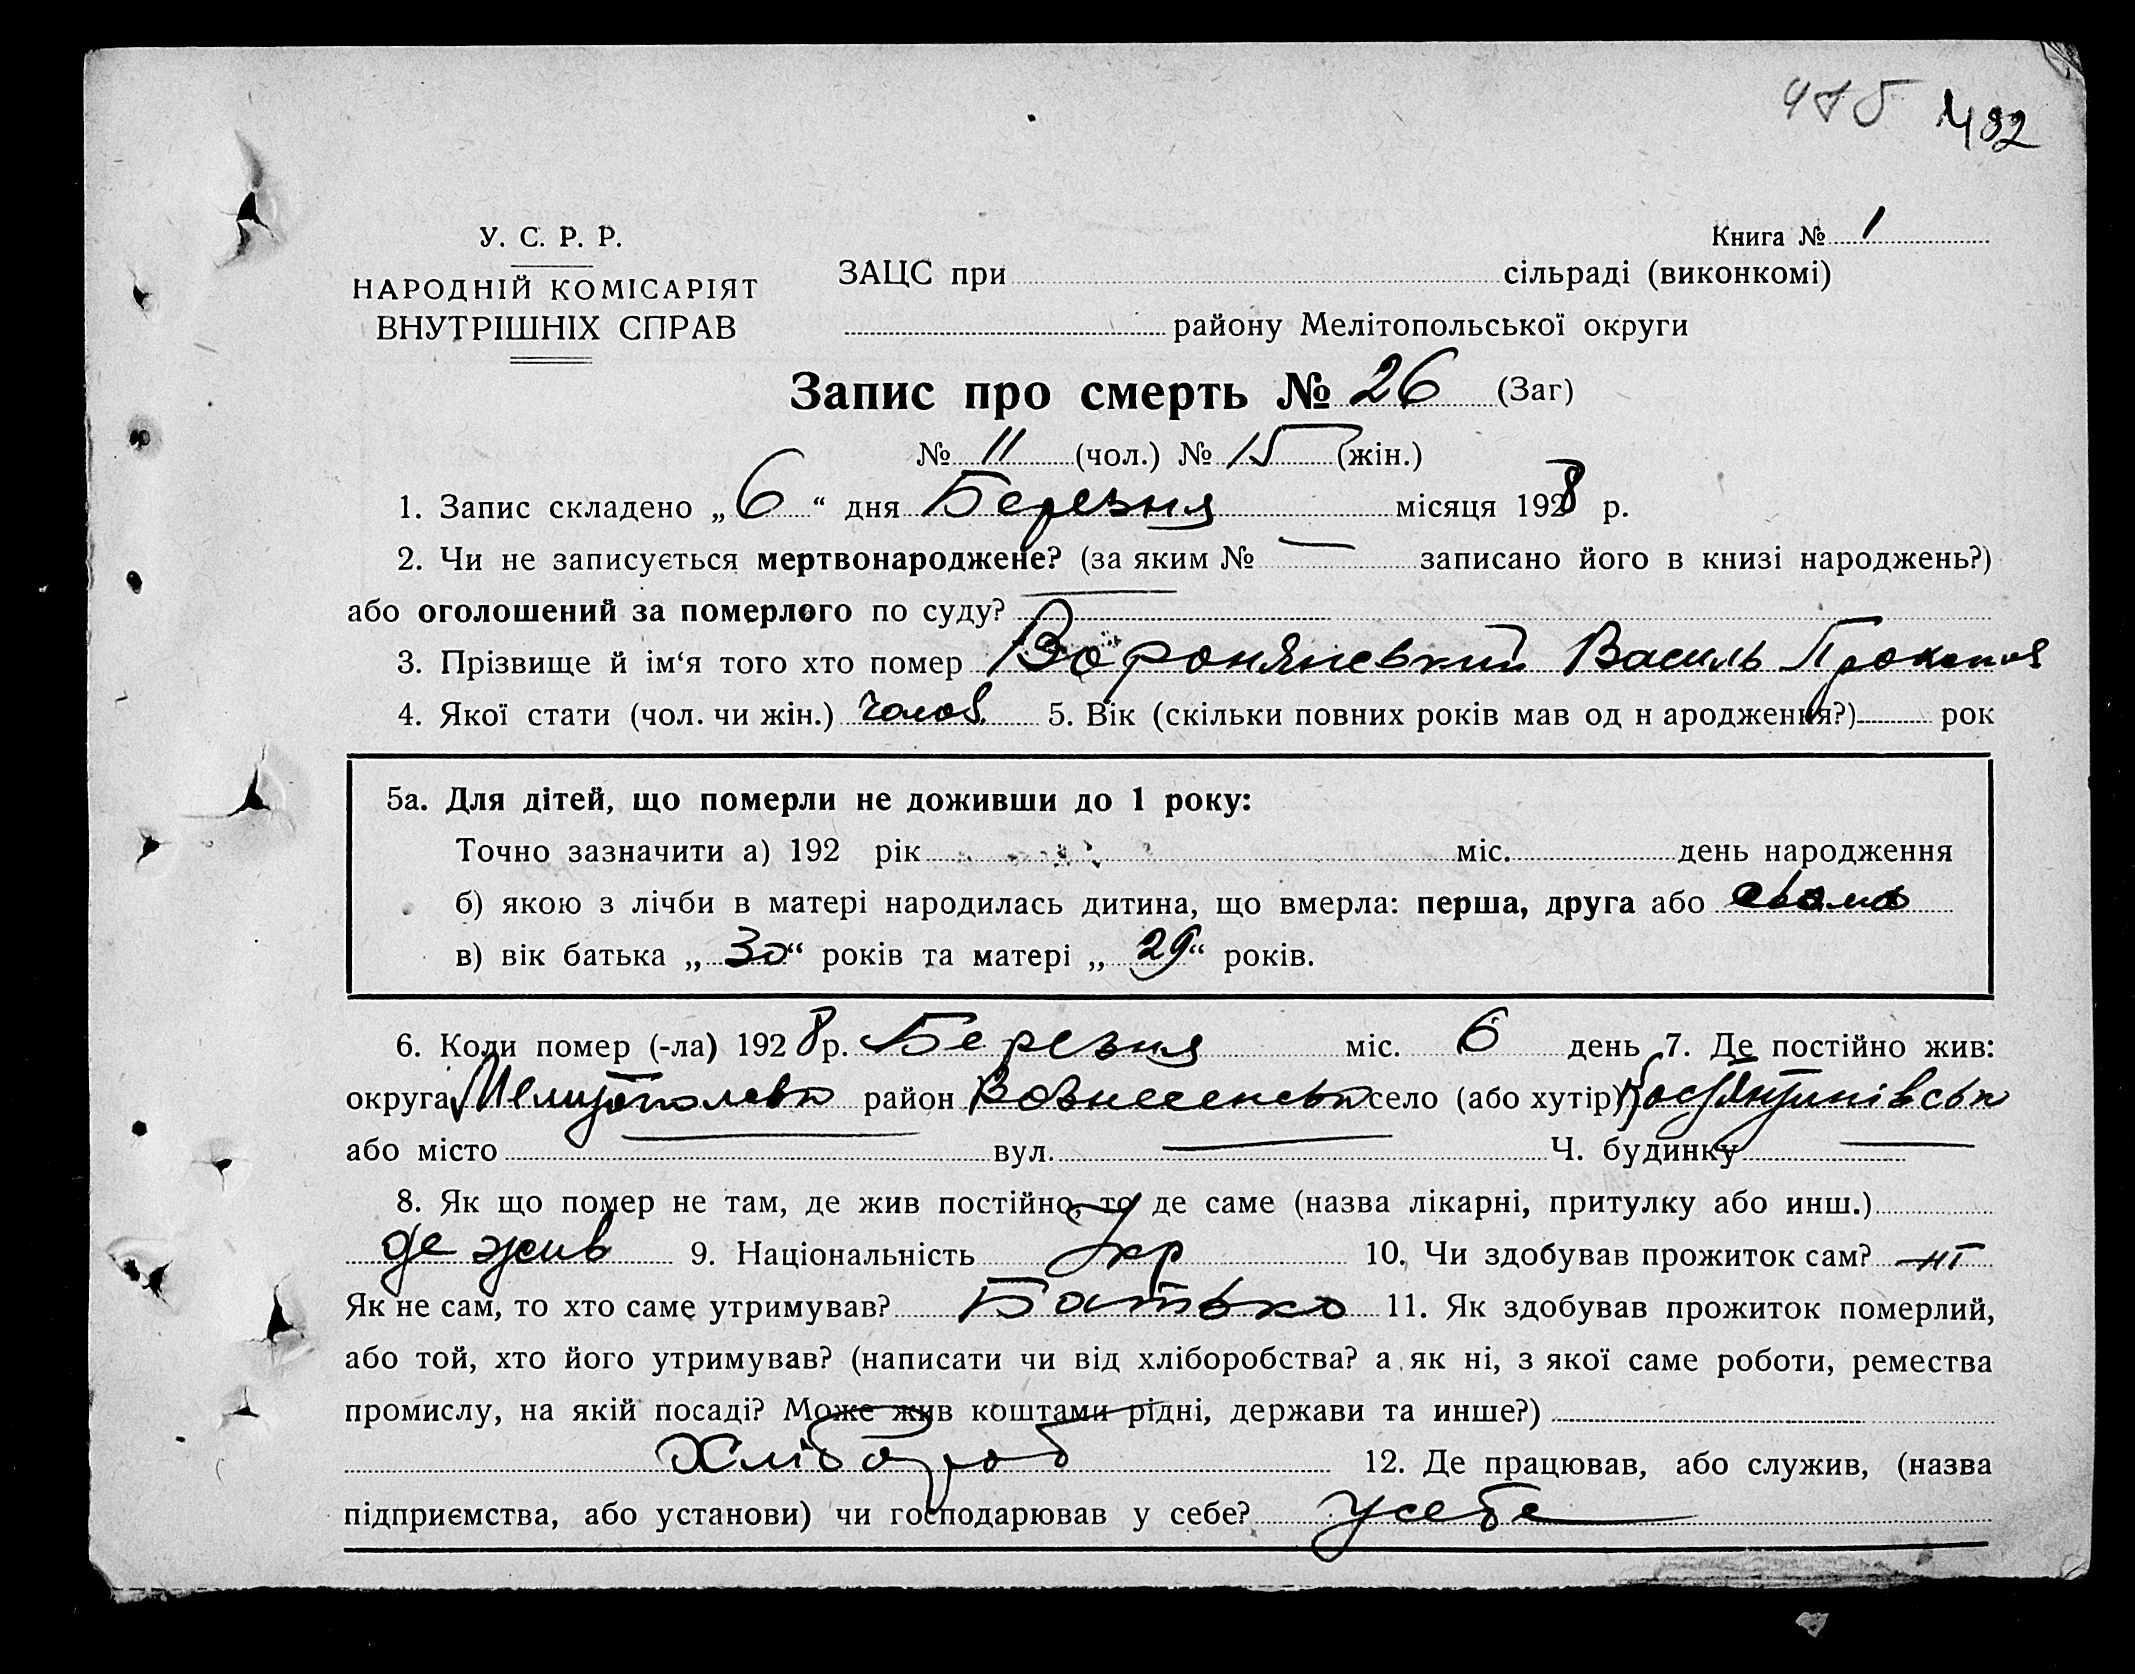 482
У. С. Р. Р.
НАРОДНІЙ КОМІСАРІЯТ
ВНУТРІШНІХ СПРАВ
Книга № 1
ЗАЦС при сільраді (виконкомі)
району Мелітопольської округи
Запис про смерть № 26 (Заг)
№ 11 (чол.) № 15 (жін.)
1. Запис складено „ 6 “ дня Березня місяця 1928 р.
2. Чи не записується мертвонароджене? (за яким № — записано його в книзі народжень?)
або оголошений за померлого по суду? —
3. Прізвище й ім‘я того хто помер Василь Прокопов
4. Якої стати (чол. чи жін.) чолов. 5. Вік (скільки повних років мав од н ародження?) рок
5а. Для дітей, що померли не доживши до 1 року:
Точно зазначити а) 192 рік міс. день народження
б) якою з лічби в матері народилась дитина, що вмерла: перша, друга або
в) вік батька „ 30 “ років та матері „ 29 “ років.
6. Коли помер (-ла) 1928 р. Березня міс. 6 день 7. Де постійно жив:
округа район село (або хутір)
або місто — вул. — Ч. будинку —
8. Як що помер не там, де жив постійно, то де саме (назва лікарні, притулку або инш.)
де жив 9. Національність Укр 10. Чи здобував прожиток сам? ні
Як не сам, то хто саме утримував? Батько 11. Як здобував прожиток померлий,
або той, хто його утримував? (написати чи від хліборобства? а як ні, з якої саме роботи, ремества
промислу, на якій посаді? Може жив коштами рідні, держави та инше?)
Хлібороб 12. Де працював, або служив, (назва
підприємства, або установи) чи господарював у себе? у себе